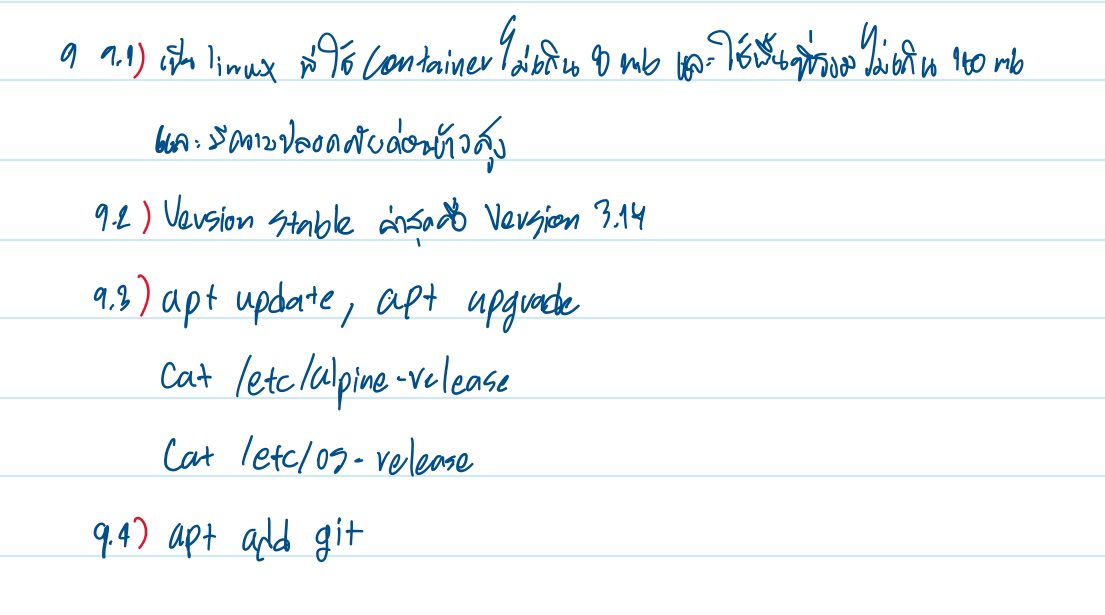 9 9.1) เป็น linux ที่ใช้ container ไม่เกิน 8 mb และ ใช้พื้นที่รวมไม่เกิน 130 mb
และ มีความปลอดภัยค่อนข้างสูง
9.2) Version stable ล่าสุดคือ Version 3.14
9.3) apt update, apt upgrade
Cat /etc/alpine-release
Cat /etc/os-release
9.4) apt add git